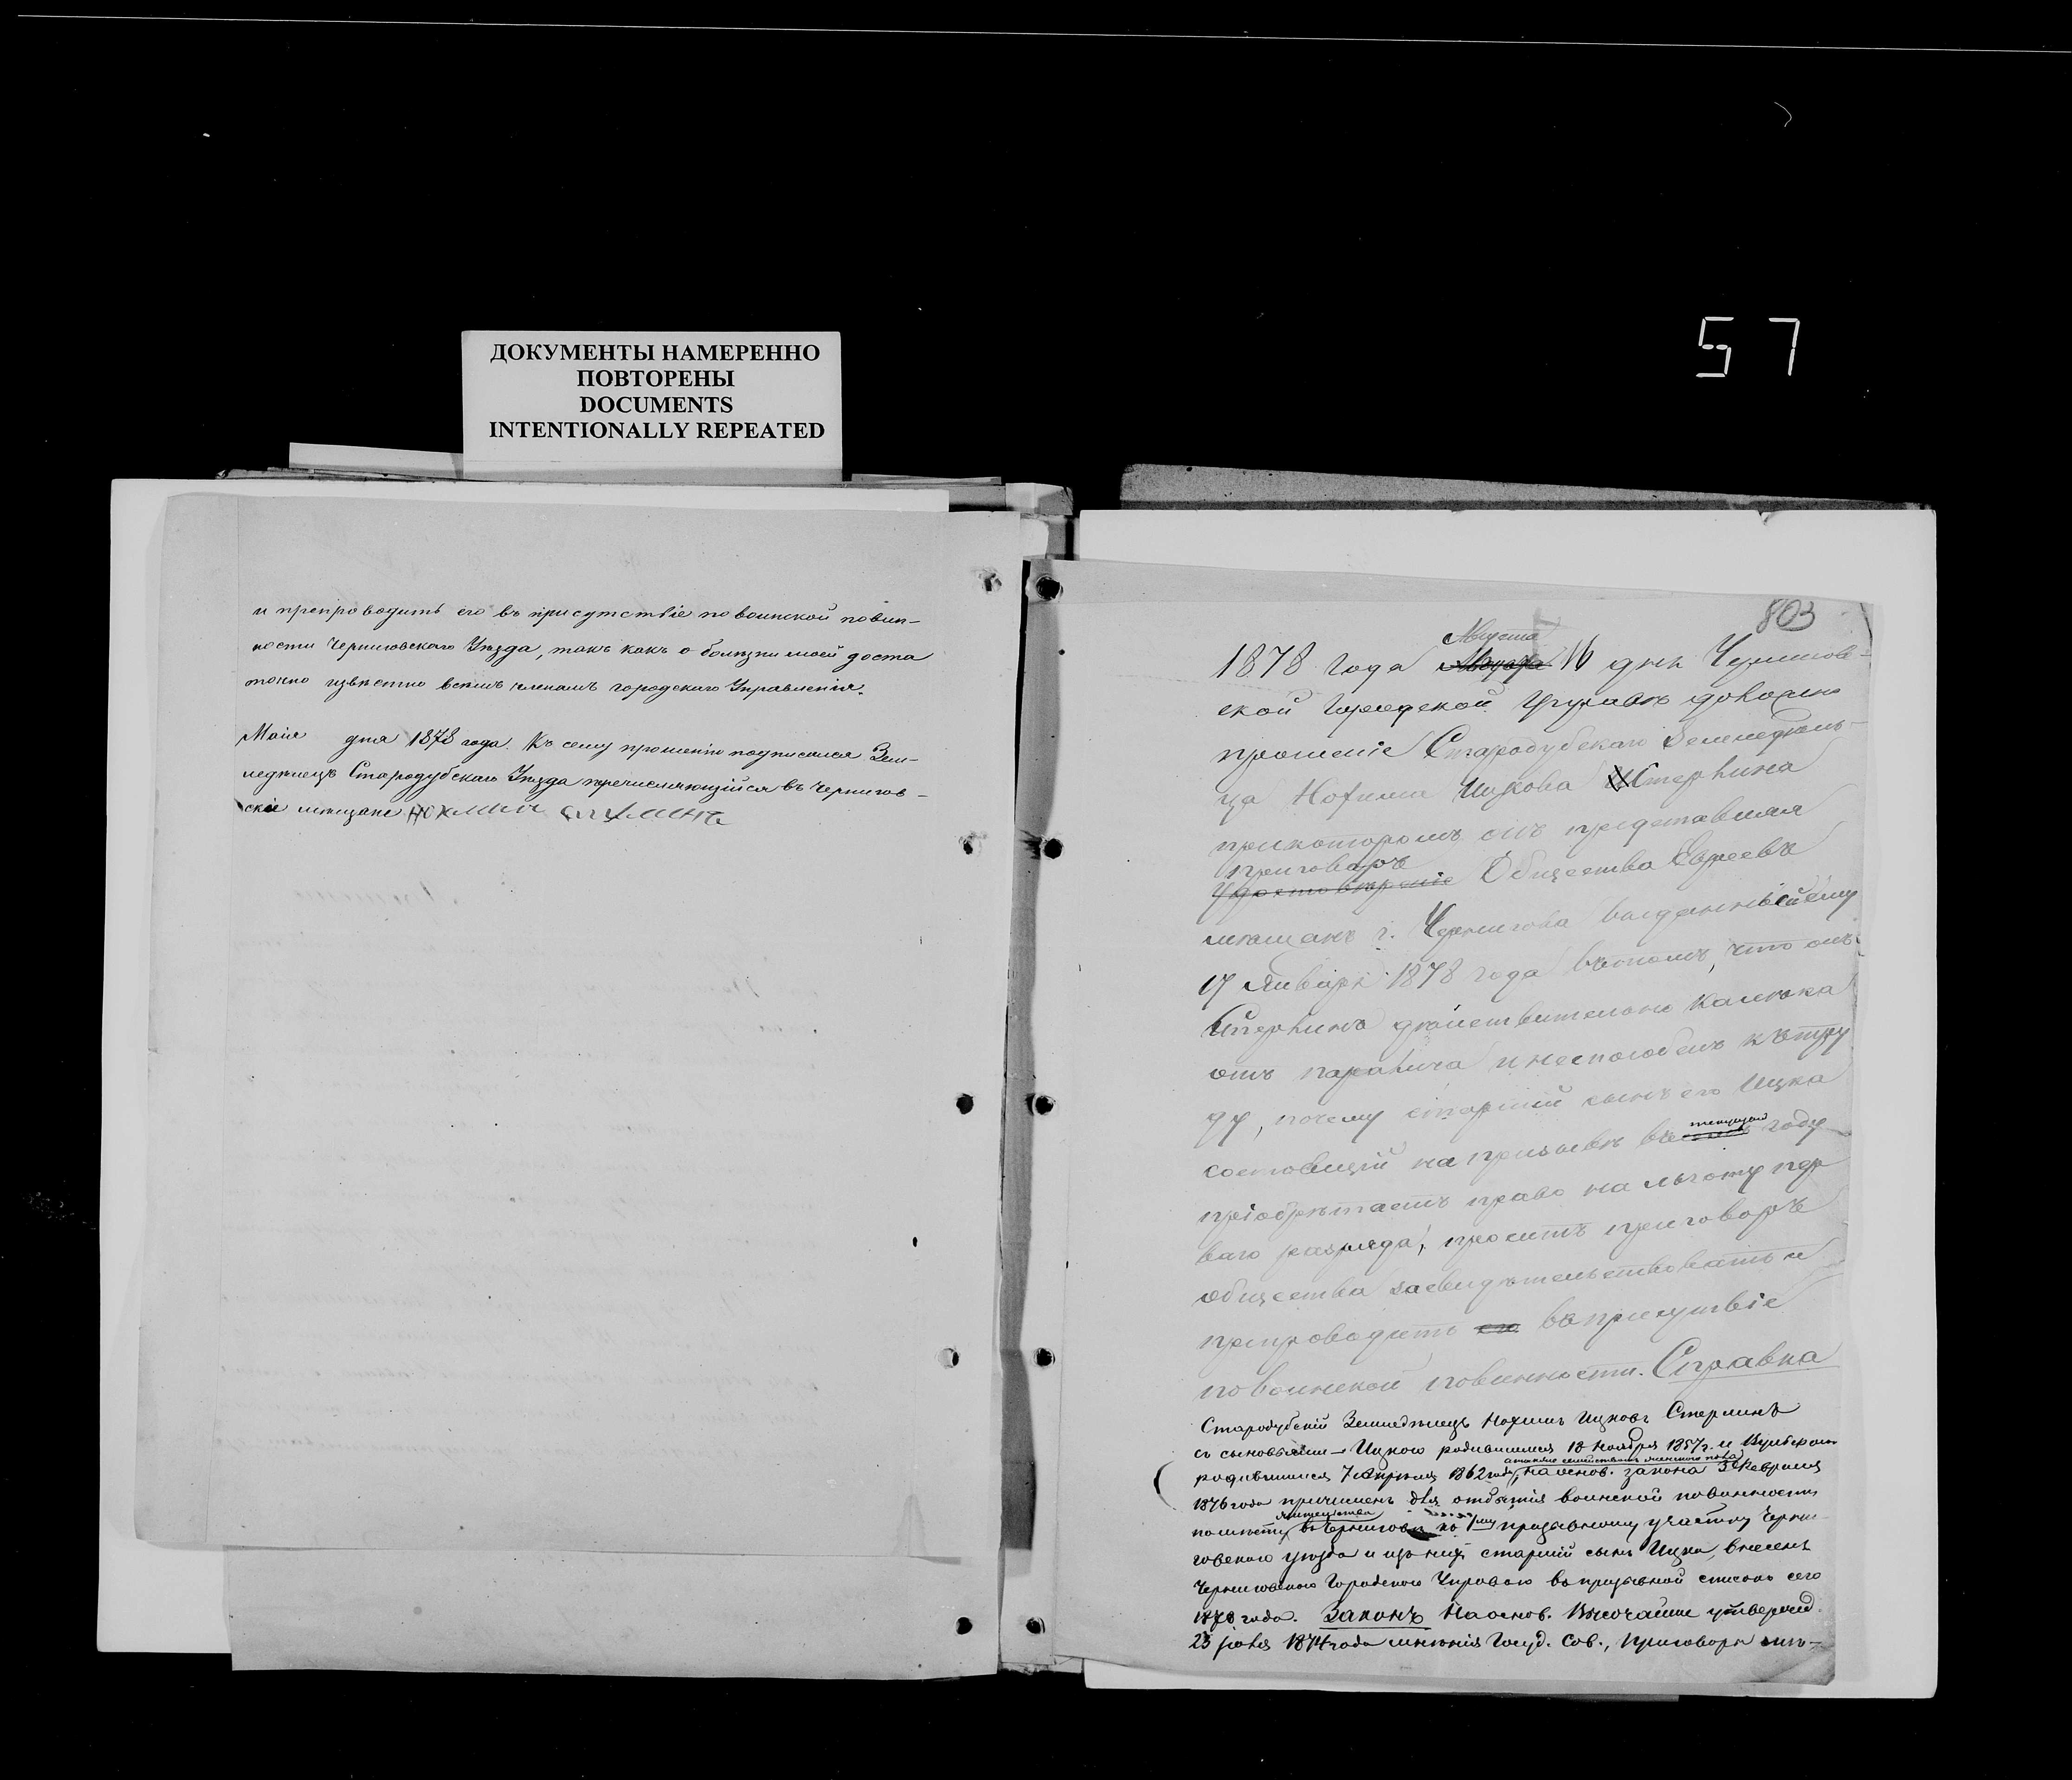 ДОКУМЕНТЫ НАМЕРЕННО
ПОВТОРЕНЫ
DOCUMENTS
INTENTIONALLY REPEATED
57
и препроводить его въ присутствіе по воинской повин-
ности Черниговскаго Уѣзда, такъ какъ о болѣзни моей доста
точно извѣстно всѣмъ членамъ городскаго Управленія.
Маія дня 1878 года. Къ сему прошенію подписался Зем-
ледѣлецъ Стародубскаго Уѣзда перечисляющійся въ Чернигов-
скіе мѣщане
803
Августа
1878 года 16 дня Чернигов-
ской Городской Управѣ доложено
прошеніе Стародубскаго Земледѣль-
ца Нохима Ицкова Стерлина
при которомъ онъ представляя
приговоръ
удостовѣреніе Общества Евреевъ
мѣщанъ г. Чернигова выданный ему
17 Января 1878 года въ томъ, что онъ
Стерлинъ дѣйствительно калѣка
отъ паралича и неспособенъ къ тру
ду, почему старшій сынъ его Ицка
текущемъ
состоящій на призывѣ въ году
пріобрѣтаетъ право на льготу пер
ваго разряда, проситъ приговоръ
общества засвидѣтельствовать и
препроводить его въ присутствіе
по воинской повинности. Справка
Стародубскій Земледѣлецъ Нохимъ Ицковъ Стерлинъ
съ сыновьями – Ицкою родившимся 18 Ноября 1857 г. и
родившимся 7 Апрѣля 1862 года, на основ. закона 3 Февраля
1876 года причисленъ для отбытія воинской повинности
жительства
по мѣсту въ Черниговѣ по 1му призывному участку Черни-
говскаго уѣзда и изъ нихъ старшій сынъ Ицка, внесенъ
Черниговскою Городскою Управою въ призывной списокъ сего
1878 года. Законъ На основ. Высочайше утвержд.
23 іюля 1874 года мнѣнія Госуд. Сов., приговоры